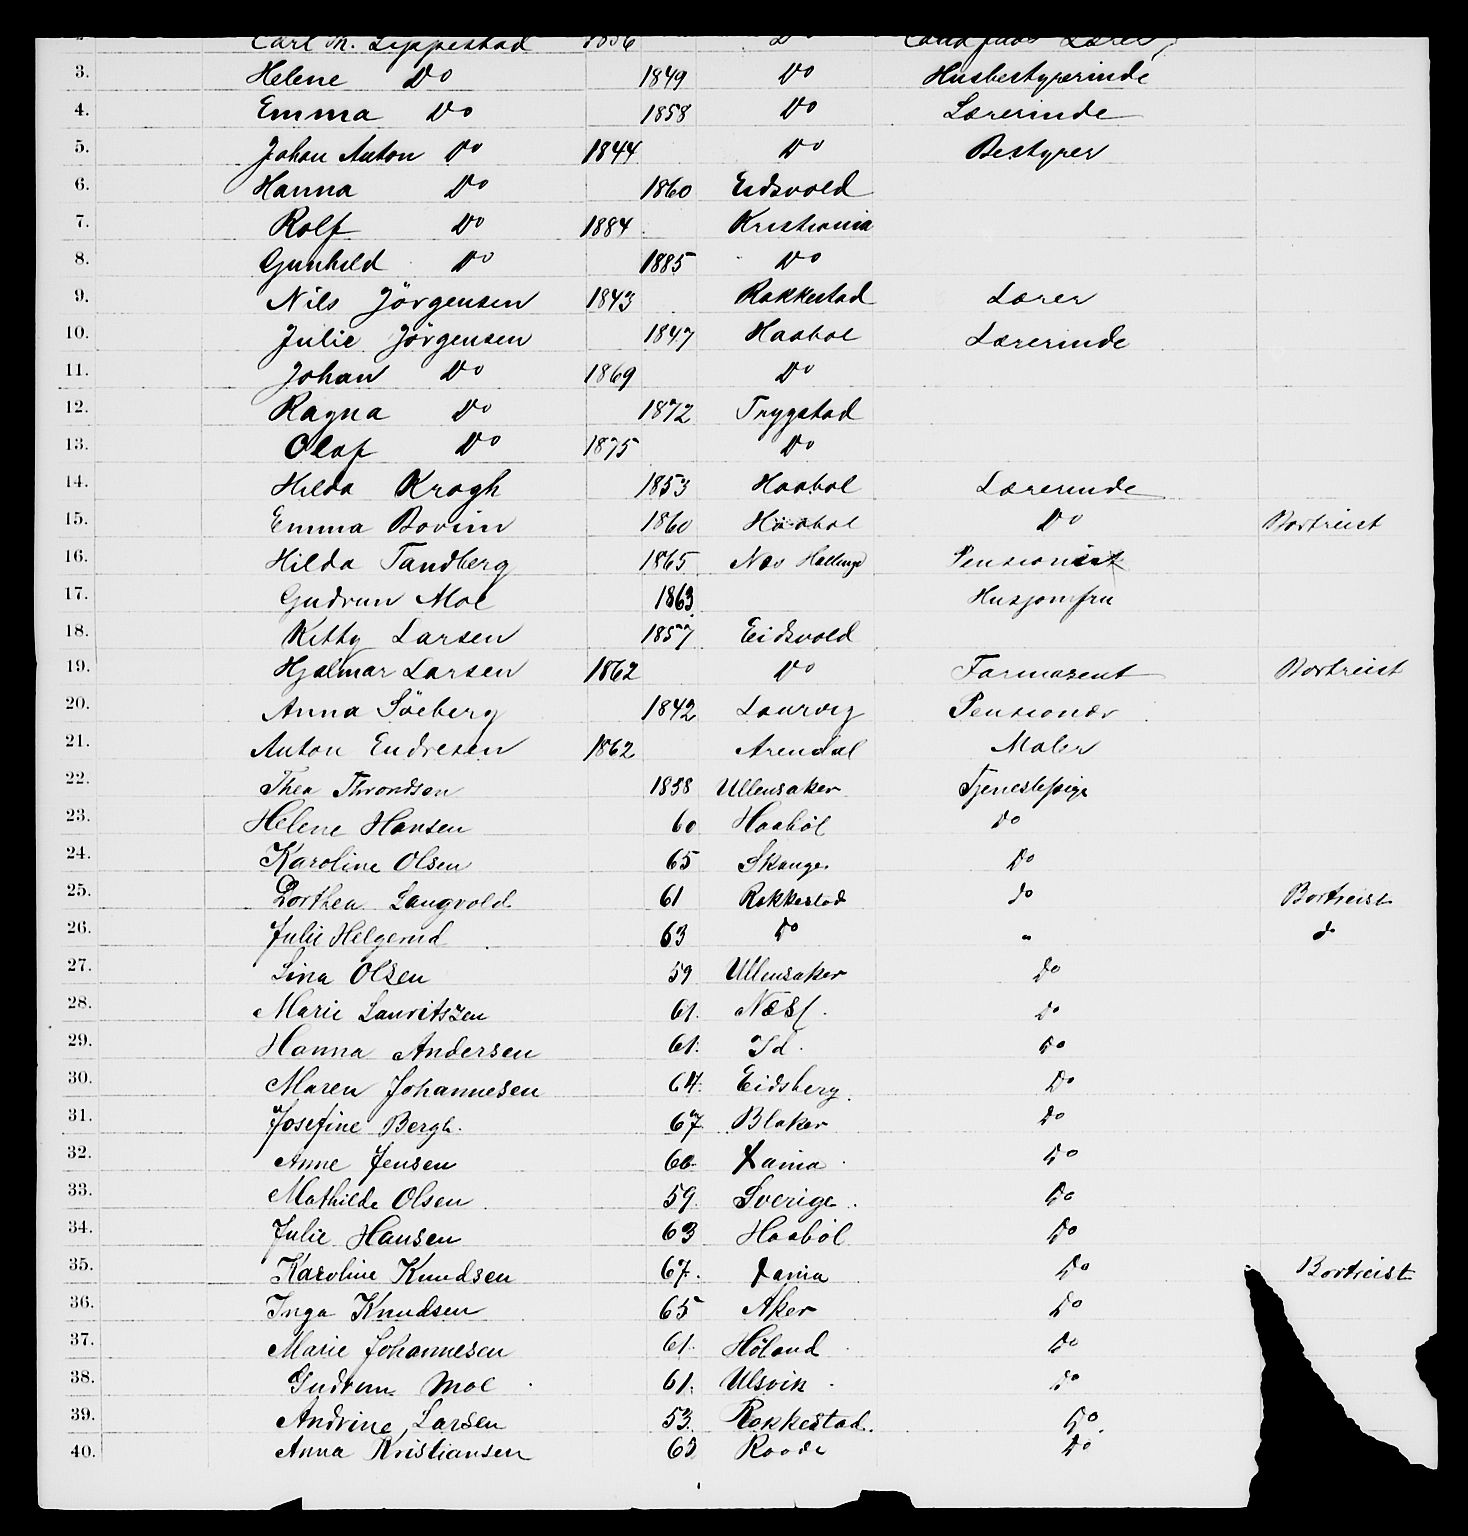 Carl M. Lippestad 1856 Do Lærer
3. Helene Do 1849 Do Husbestyrerinde
4. Emma Do 1858 Do Lærerinde
5. Johan Anton Do 1844 Do Bestyrer
6. Hanna Do 1860 Eidsvold
7. Rolf Do 1884 Kristiania
8. Gunhild Do 1885 Do
9. Nils Jörgensen 1843 Rakkestad Lærer
10. Julie Jörgensen 1847 Haabol Lærerinde
11. Johan Do 1869 Do
12. Ragna Do 1872 Trygstad
13. Olaf Do 1875 Do
14. Hilda Kragh 1853 Haabol Lærerinde
15. Emma Bovim 1860 Haabol Do Bortreist
16. Hilda Tandberg 1865 Næs Pensionist
17. Gudrun Moe 1863 Husjomfru
18. Kitty Larsen 1857 Eidsvold
19. Hjalmar Larsen 1862 Do Farmasent Bortreist
20. Anna Söeberg 1842 Laurvig Pensionær
21. Anton Endresen 1862 Arendal Maler
22. Thea Throndsen 1858 Ullensaker Tjenestepige
23. Helene Hansen 60 Haaböl Do
24. Karoline Olsen 65 Do
25. Dorthea Langvold 61 Rakkestad do Bortreist
26. Julie Helgerud 63 Do " d
27. Lina Olsen 59 Ullensaker Do
28. Marie Lauritszen 61. Næs Do
29. Hanna Andersen 61. Id. Do
30. Maren Johannesen 64. Eidsberg. Do
31. Josefine Bergh. 67. Blaker Do
32. Anne Jensen 66. Xania. Do
33. Mathilde Olsen 59. Sverige. Do
34. Julie Hansen 63 Haaböl Do
35. Karoline Knudsen 67. Xania Do Bortreist
36. Inga Knudsen 65 Aker Do
37. Marie Johannesen 61. Höland. Do
38. Gudrun Moe 61. Ulsvik. Do
39. Andrine Larsen 53. Rakkestad. Do.
40. Anna Kristiansen 63 Raade Do